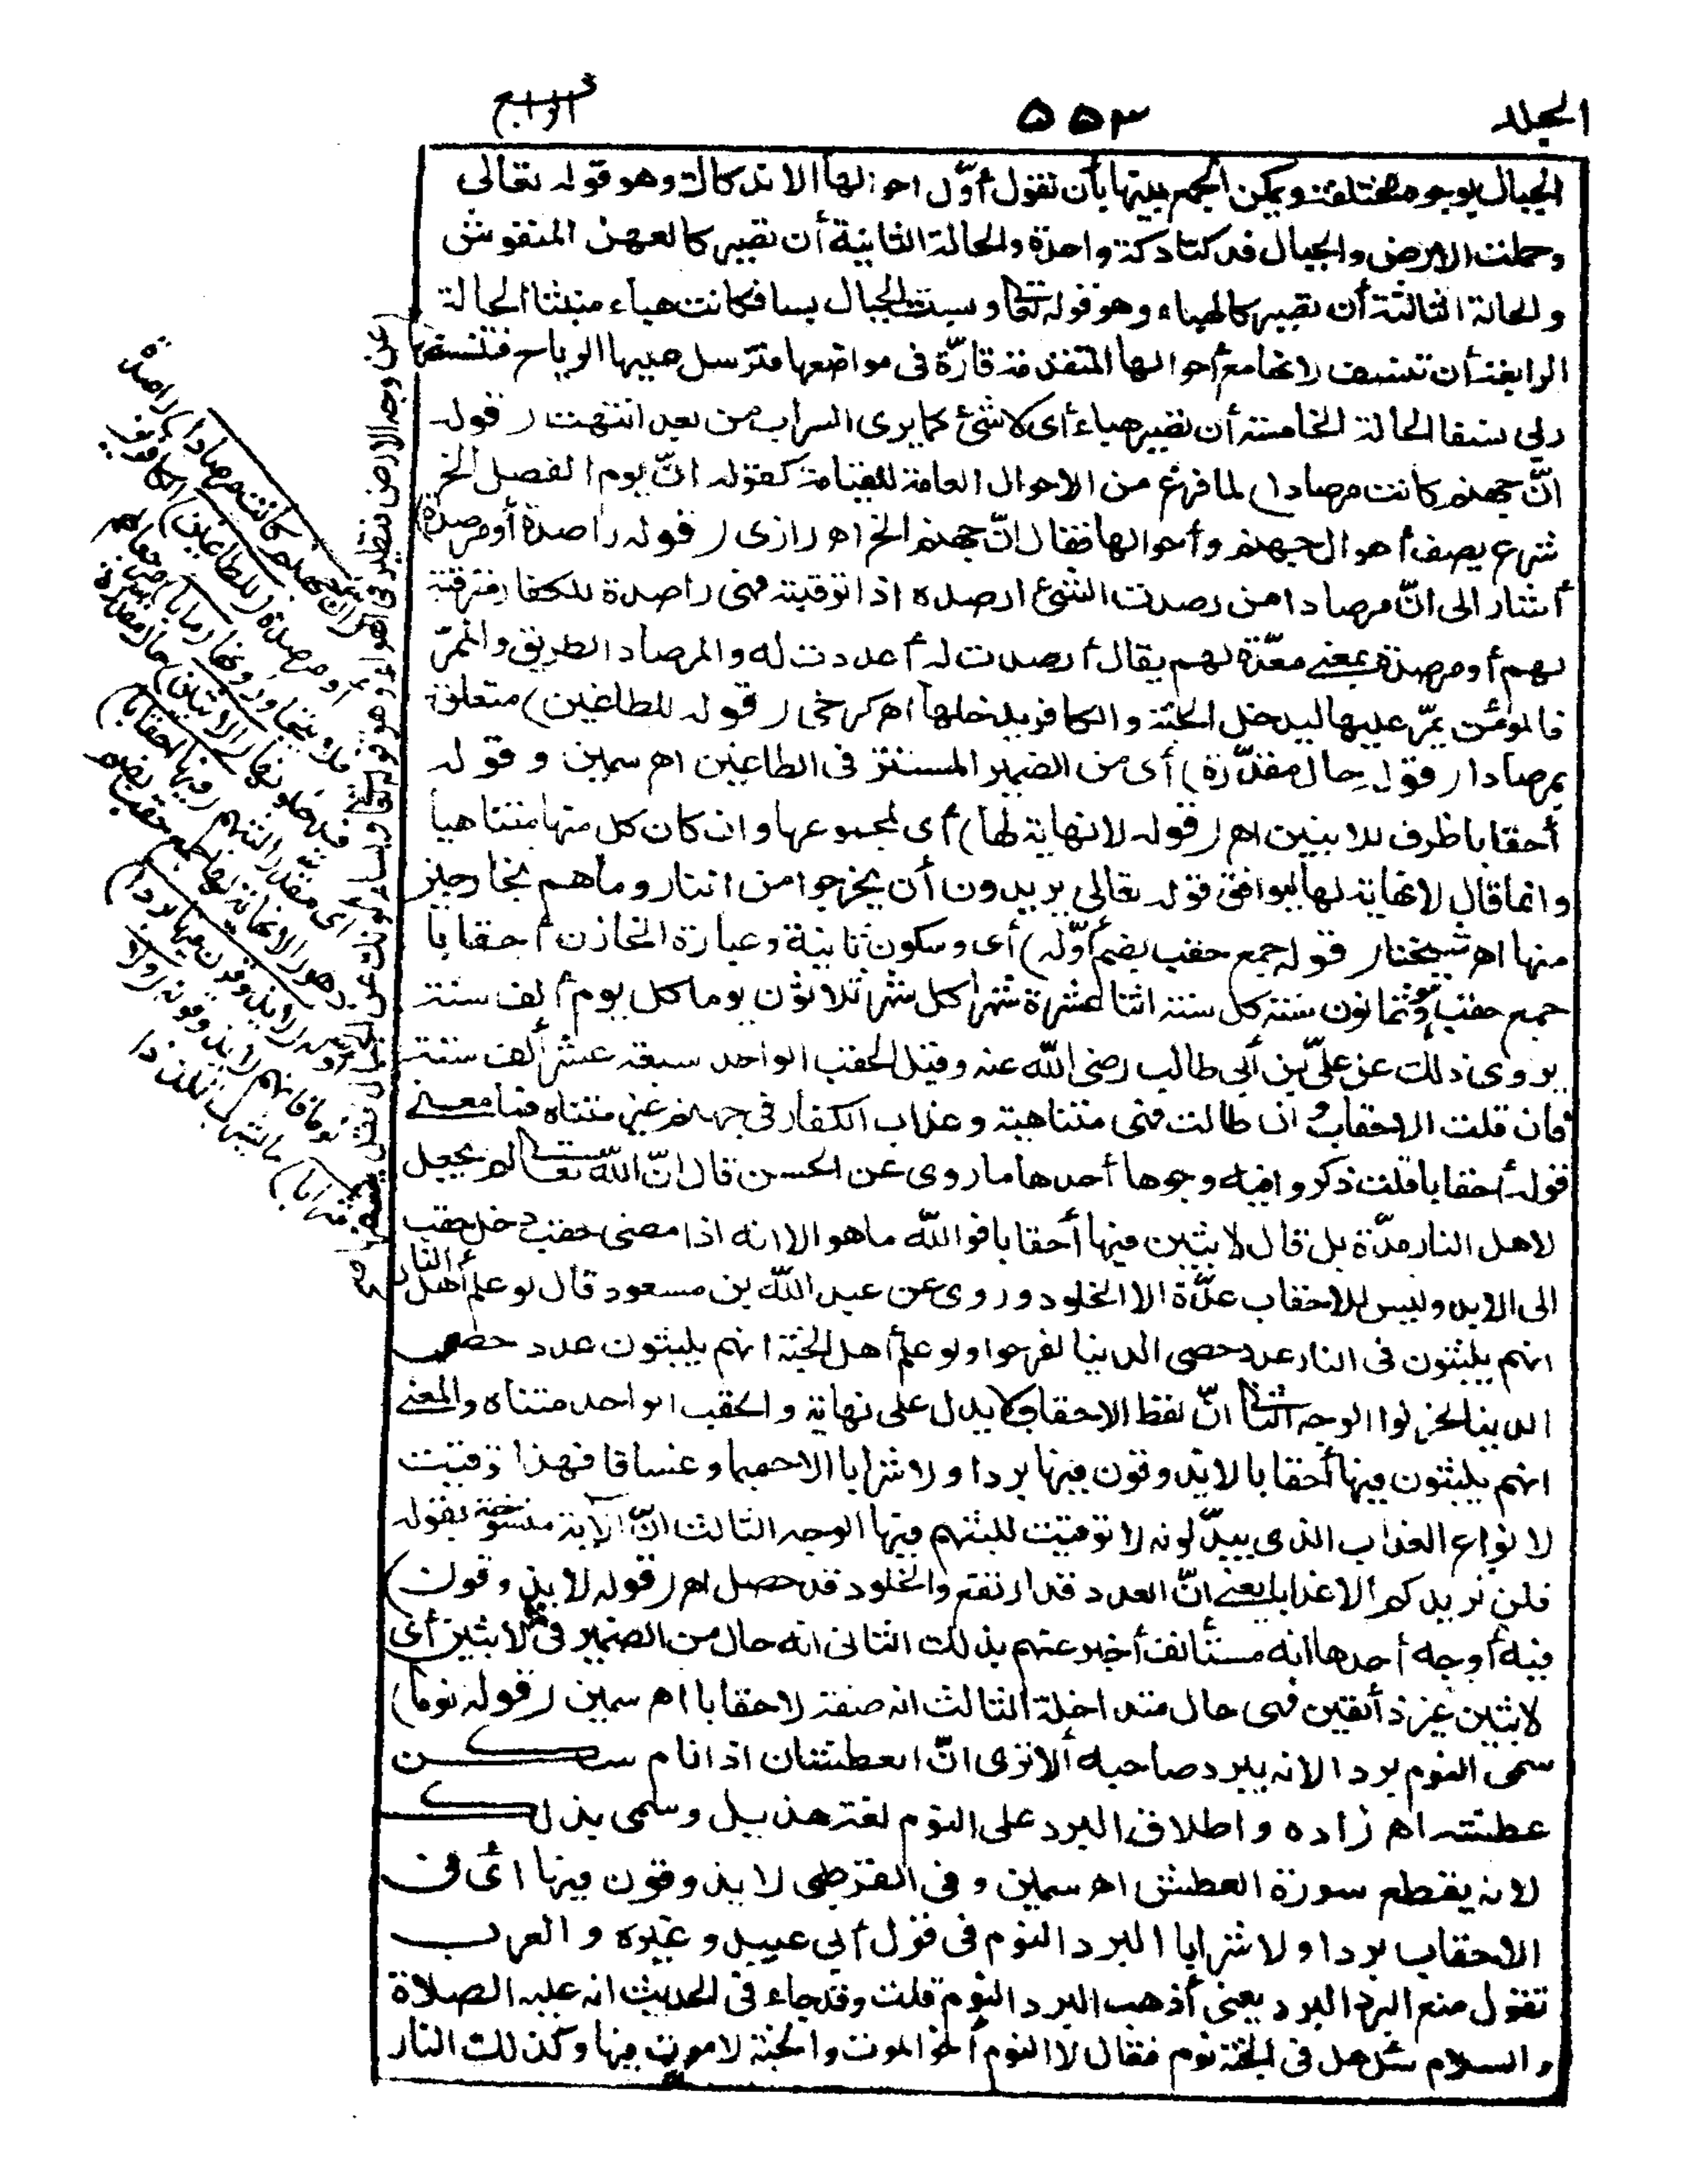 الجلد ٥٥٣ الرابع
الجبال بوجوه مختلفة ويمكن الجمع بينها بأن نقول أوّل احوالها الاندكاك وهو قوله تعالى
وحملت الارض والجبال فدكتا دكة واحدة والحالة الثانية أن تصير كالعهن المنفوش
والحالة الثالثة أن تصير كالهباء وهو قوله تعا وبست الجبال بسا فكانت هباء منبثا الحالة
الرابعة أن تنسف لانها مع أحوالها المتقدمة قارّة فى مواضعها فترسل عليها الرياح فتنسفها
ربى نسفا الحالة الخامسة أن تصير هباء أى كلاشئ كما يرى السراب من بعد انتهت (قوله
انّ جهنم كانت مرصادا) لما فرغ من الاحوال العامة للقيامة كقوله انّ يوم الفصل الخ
شرع يصف أهوال جهنم وأحوالها فقال انّ جهنم الخ اهـ رازى (قوله راصدة أو مرصدة)
أشار الى انّ مرصادا من رصدت الشئ ارصده اذا ترقبته فهى راصدة للكفار مترقبة
لهم أو مرصدة بمعنى معدّة لهم يقال أرصدت له أعددت له والمرصاد الطريق والممرّ
فالمؤمن يمرّ عليها ليدخل الجنة والكافر يدخلها اهـ كرخى (قوله للطاغين) متعلق
بمرصادا (قوله حال مقدّرة) أى من الضمير المستتر فى الطاغين اهـ سمين وقوله
أحقابا ظرف للابثين اهـ (قوله لانهاية لها) أى لمجموعها وان كان كل منها متناهيا
وانما قال لانهاية لها ليوافق قوله تعالى يريدون أن يخرجوا من النار وما هم بخارجين
منها اهـ شيخنا (قوله جمع حقب بضم أوّله) أى وسكون ثانية وعبارة الخازن أحقابا
جمع حقب وهو ثمانون سنة كل سنة اثنا عشرة شهرا كل شهر ثلاثون يوما كل يوم ألف سنة
يروى ذلك عن علىّ بن أبى طالب رضى الله عنه وقيل الحقب الواحد سبعة عشر ألف سنة
فان قلت الاحقاب وان طالت فهى متناهية وعذاب الكفار فى جهنم غير متناه فما معنى
قوله أحقابا قلت ذكروا فيه وجوها أحدها ما روى عن الحسن قال انّ الله تعالى لم يجعل
لاهل النار مدّة بل قال لابثين فيها أحقابا فوالله ما هو الا انه اذا مضى حقب دخل حقب
الى الابد وليس للاحقاب عدّة الا الخلود وروى عن عبد الله بن مسعود قال لو علم أهل النار
انهم يلبثون فى النار عدد حصى الدنيا لفرحوا ولو علم أهل الجنة انهم يلبثون عدد حصى
الدنيا لحزنوا الوجه الثانى انّ لفظ الاحقاب لا يدل على نهاية والحقب الواحد متناه والمعنى
انهم يلبثون فيها أحقابا لا يذوقون فيها بردا ولا شرابا الا حميما وغساقا فهذا توقيت
لانواع العذاب الذى يبدّلونه لا توقيت للبثهم فيها الوجه الثالث انّ الآية منسوخة بقوله
فلن نزيدكم الا عذابا يعنى انّ العدد قد ارتفع والخلود قد حصل اهـ (قوله لا يذوقون)
فيه أوجه أحدها انه مستأنف أخبر عنهم بذلك الثانى انه حال من الضمير فى لابثين أى
لابثين غير ذائقين فهى حال متداخلة الثالث انه صفة لاحقابا اهـ سمين (قوله نوما)
سمى النوم بردا لانه يبرد صاحبه ألا ترى انّ العطشان اذا نام سكن
عطشه اهـ زاده واطلاق البرد على النوم لغة هذيل وسمى بذلك
لانه يقطع سورة العطش اهـ سمين وفى القرطبى لا يذوقون فيها أى فى
الاحقاب بردا ولا شرابا البرد النوم فى قول أبى عبيد وغيره والعرب
تقول منع البرد البرد يعنى أذهب البرد النوم قلت وقد جاء فى الحديث انه عليه الصلاة
والسلام سئل هل فى الجنة نوم فقال لا النوم أخو الموت والجنة لا موت فيها وكذلك النار
(انّ جهنم كانت مرصادا) راصدة
أو مرصدة (للطاغين) الكافرين
فلا يتجاوزونها (مآبا) مرجعا لهم
فيدخلونها (لابثين) حال مقدرة
أى مقدّرا لبثهم (فيها أحقابا)
دهورا لا نهاية لها جمع حقب بضم
أوّله (لا يذوقون فيها بردا)
نوما فانهم لا يذوقونه (ولا
شرابا) ما يشرب تلذذا